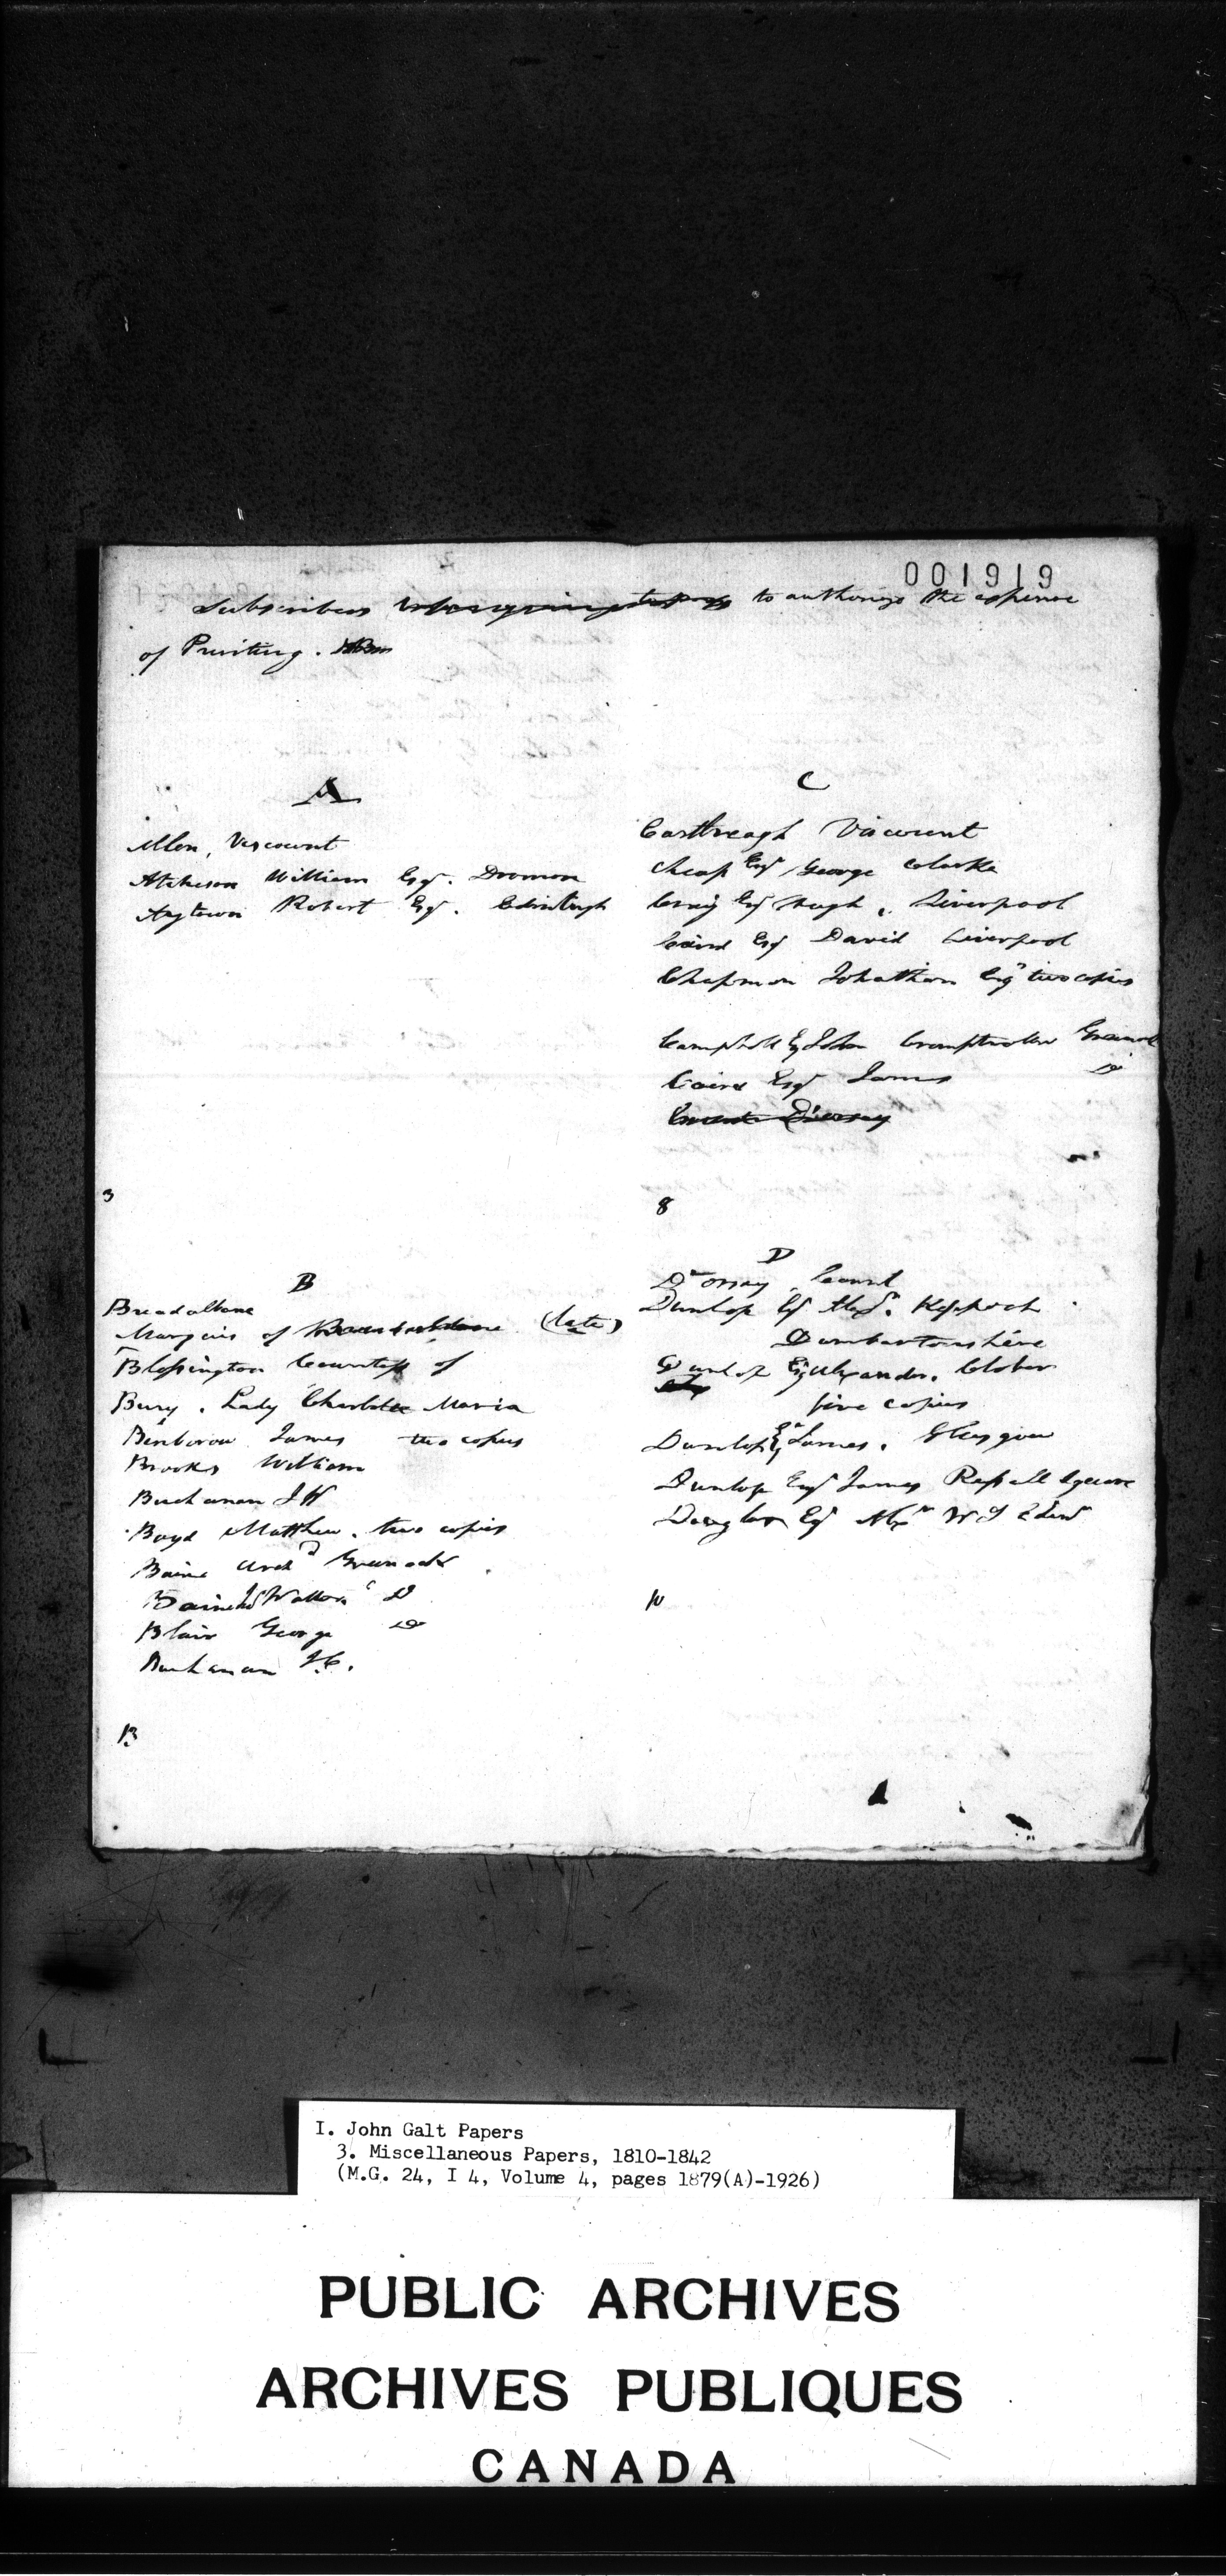 001919
Subscribers to authorize the expense
of Printing.
A
Allen, Viscount
Atcheson William Esqr.
Aytown Robert Esqr. Edinburgh
3
B
Breadalbane
Marquis of Breadalbane (late)
Blessington Countess of
Bury, Lady Charlotte Maria
Benborow James two copies
Brooks William
Buchanan J W
Boyd Matthew. two copies
Baine Archd Greenock
Baine Walter Do
Blair George Do
Buchanan J.C.
13
C
Castlreagh Viscount
Cheap Esqr George Clarke
Craig Esqr Hugh, Liverpool
Caird Esq David Liverpool
Chapman Johathan Esqr two copies
Campbell Esq John Comptroller Greenock
Caird Esqr James Do
8
D
D'orsay, Count
Dunlop Esq Alexr. Keppoch
Dumbartonshire
Dunlop Esq Alexander. Clober
five copies
Dunlop Esq James. Glasgow
Dunlop Esqr James Russell Square
Douglas Esq Alexr W S Edinr
10
I. John Galt Papers
3. Miscellaneous Papers, 1810-1842
(M.G. 24, I 4, Volume 4, pages 1879(A)-1926)
PUBLIC ARCHIVES
ARCHIVES PUBLIQUES
CANADA